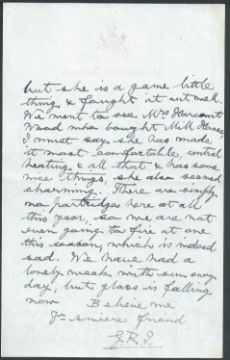 but she is a game little
thing & fought it out well.
We went to see Mrs Harcourt
Wood who bought Mill House
I must say she has made
it most comfortable, central
heating & all that & has some
nice things, she also seemed
charming. There are simply
no partridges here at all
this year, so we are not
even going to fire at one
this season, which is indeed
sad. We have had a
lovely week with sun every
day, but glass is falling
now Believe me
Yr sincere friend